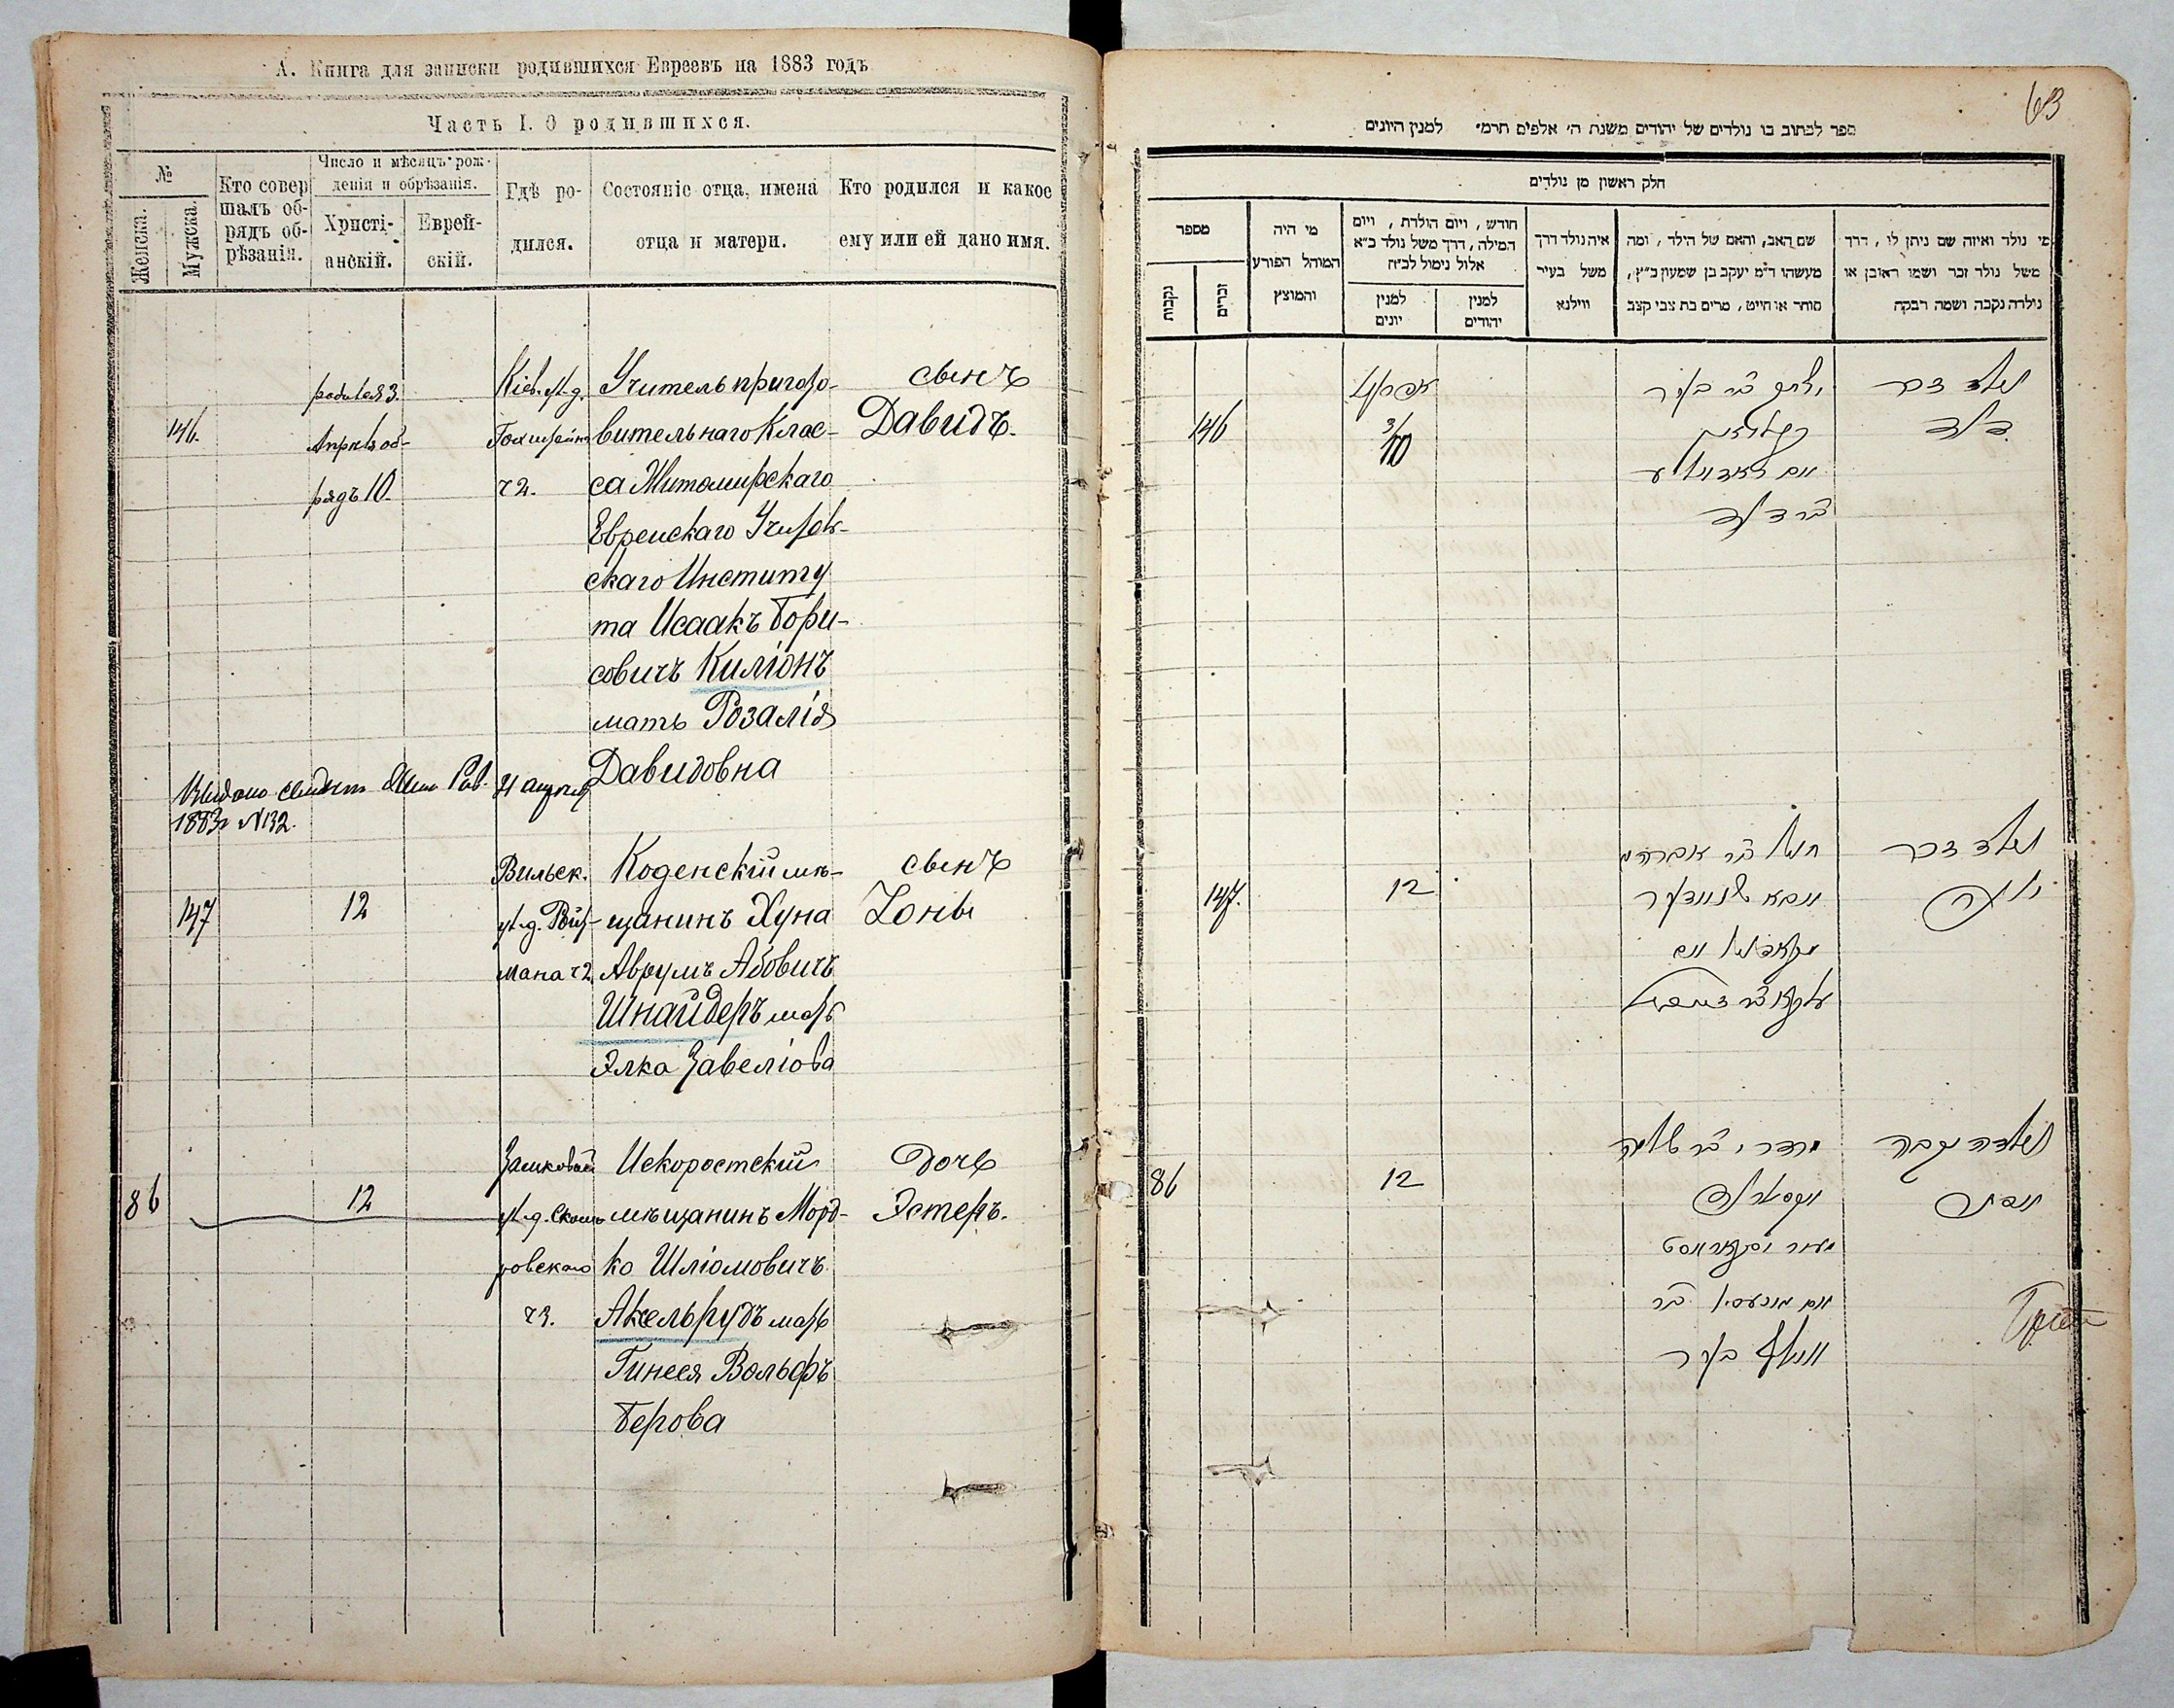 А. Книга для записки родившихся Евреевъ на 1883 годъ
Часть I. О родившихся.
№
Женска.
Мужска.
Кто совер
шалъ об-
рядъ об-
рѣзанія.
Число и мѣсяцъ рож-
денія и обрѣзанія.
Христі-
анскій.
Еврей-
скій.
Гдѣ ро-
дился.
Состояніе отца, имена
отца и матери.
Кто родился и какое
ему или ей дано имя.
146.
родился 3.
Апрѣля об-
рядъ 10.
Кіев. ул. д.
ч 2.
Учитель пригото-
вительнаго Клас-
са Житомирскаго
Еврейскаго Учитель-
скаго Институ
та Исаакъ Бори-
совичъ Киліонъ
мать Розалія
Давидовна
сынъ
Давидъ.
Выдано свидѣт.
21 апрѣля
1883 г. №132.
147
12
Вильск.
ул. д. Ройт-
мана ч 2.
Коденскій мѣ-
щанинъ Хуна
Аврумъ Абовичъ
Шнайдеръ мать
Элка Завеліова
сынъ
Iонь
86
12
Замковая
ул. д.
ровскаго
ч 3.
Искоростскій
мѣщанинъ Морд-
ко Шліомовичъ
Аксельрудъ мать
Гинеся Вольфъ
Берова
дочь
Эстеръ.
63
ספר לכתוב בו נולדים של יהודים משנת ה׳ אלפים תרמ״ למנין היונים
חלק ראשון מן נולדים
מספר
נקבות
זכרים
מי היה
המוהל הפורע
והמוצץ
חודש, ויום הולדת, ויום
המילה, דרך משל נולד כ״א
אלול נימול לכ״ח
למנין
יונים
למנין
יהודים
איה נולד דרך
משל בעיר
ווילנא
שם האב, והאם של הילד, ומה
מעשהו ד״מ יעקב בן שמעון כ״ץ,
סוחר או חייט, מרים בת צבי קצב
מי נולד ואיזה שם ניתן לו, דרך
משל נולד זכר ושמו ראובן או
נולדה נקבה ושמה רבקה
146
אפריל
3/10
יצחק ב״ר בער
ב״ר דוד
נולד זכר
דוד
147.
12
חונא ב״ר אברהם
אבא שניידער
נולד זכר
יונה
86
12
מרדכי ב״ר שלמה
אקסעלרוד
וואלף בער
נולדה נקבה
אסתר